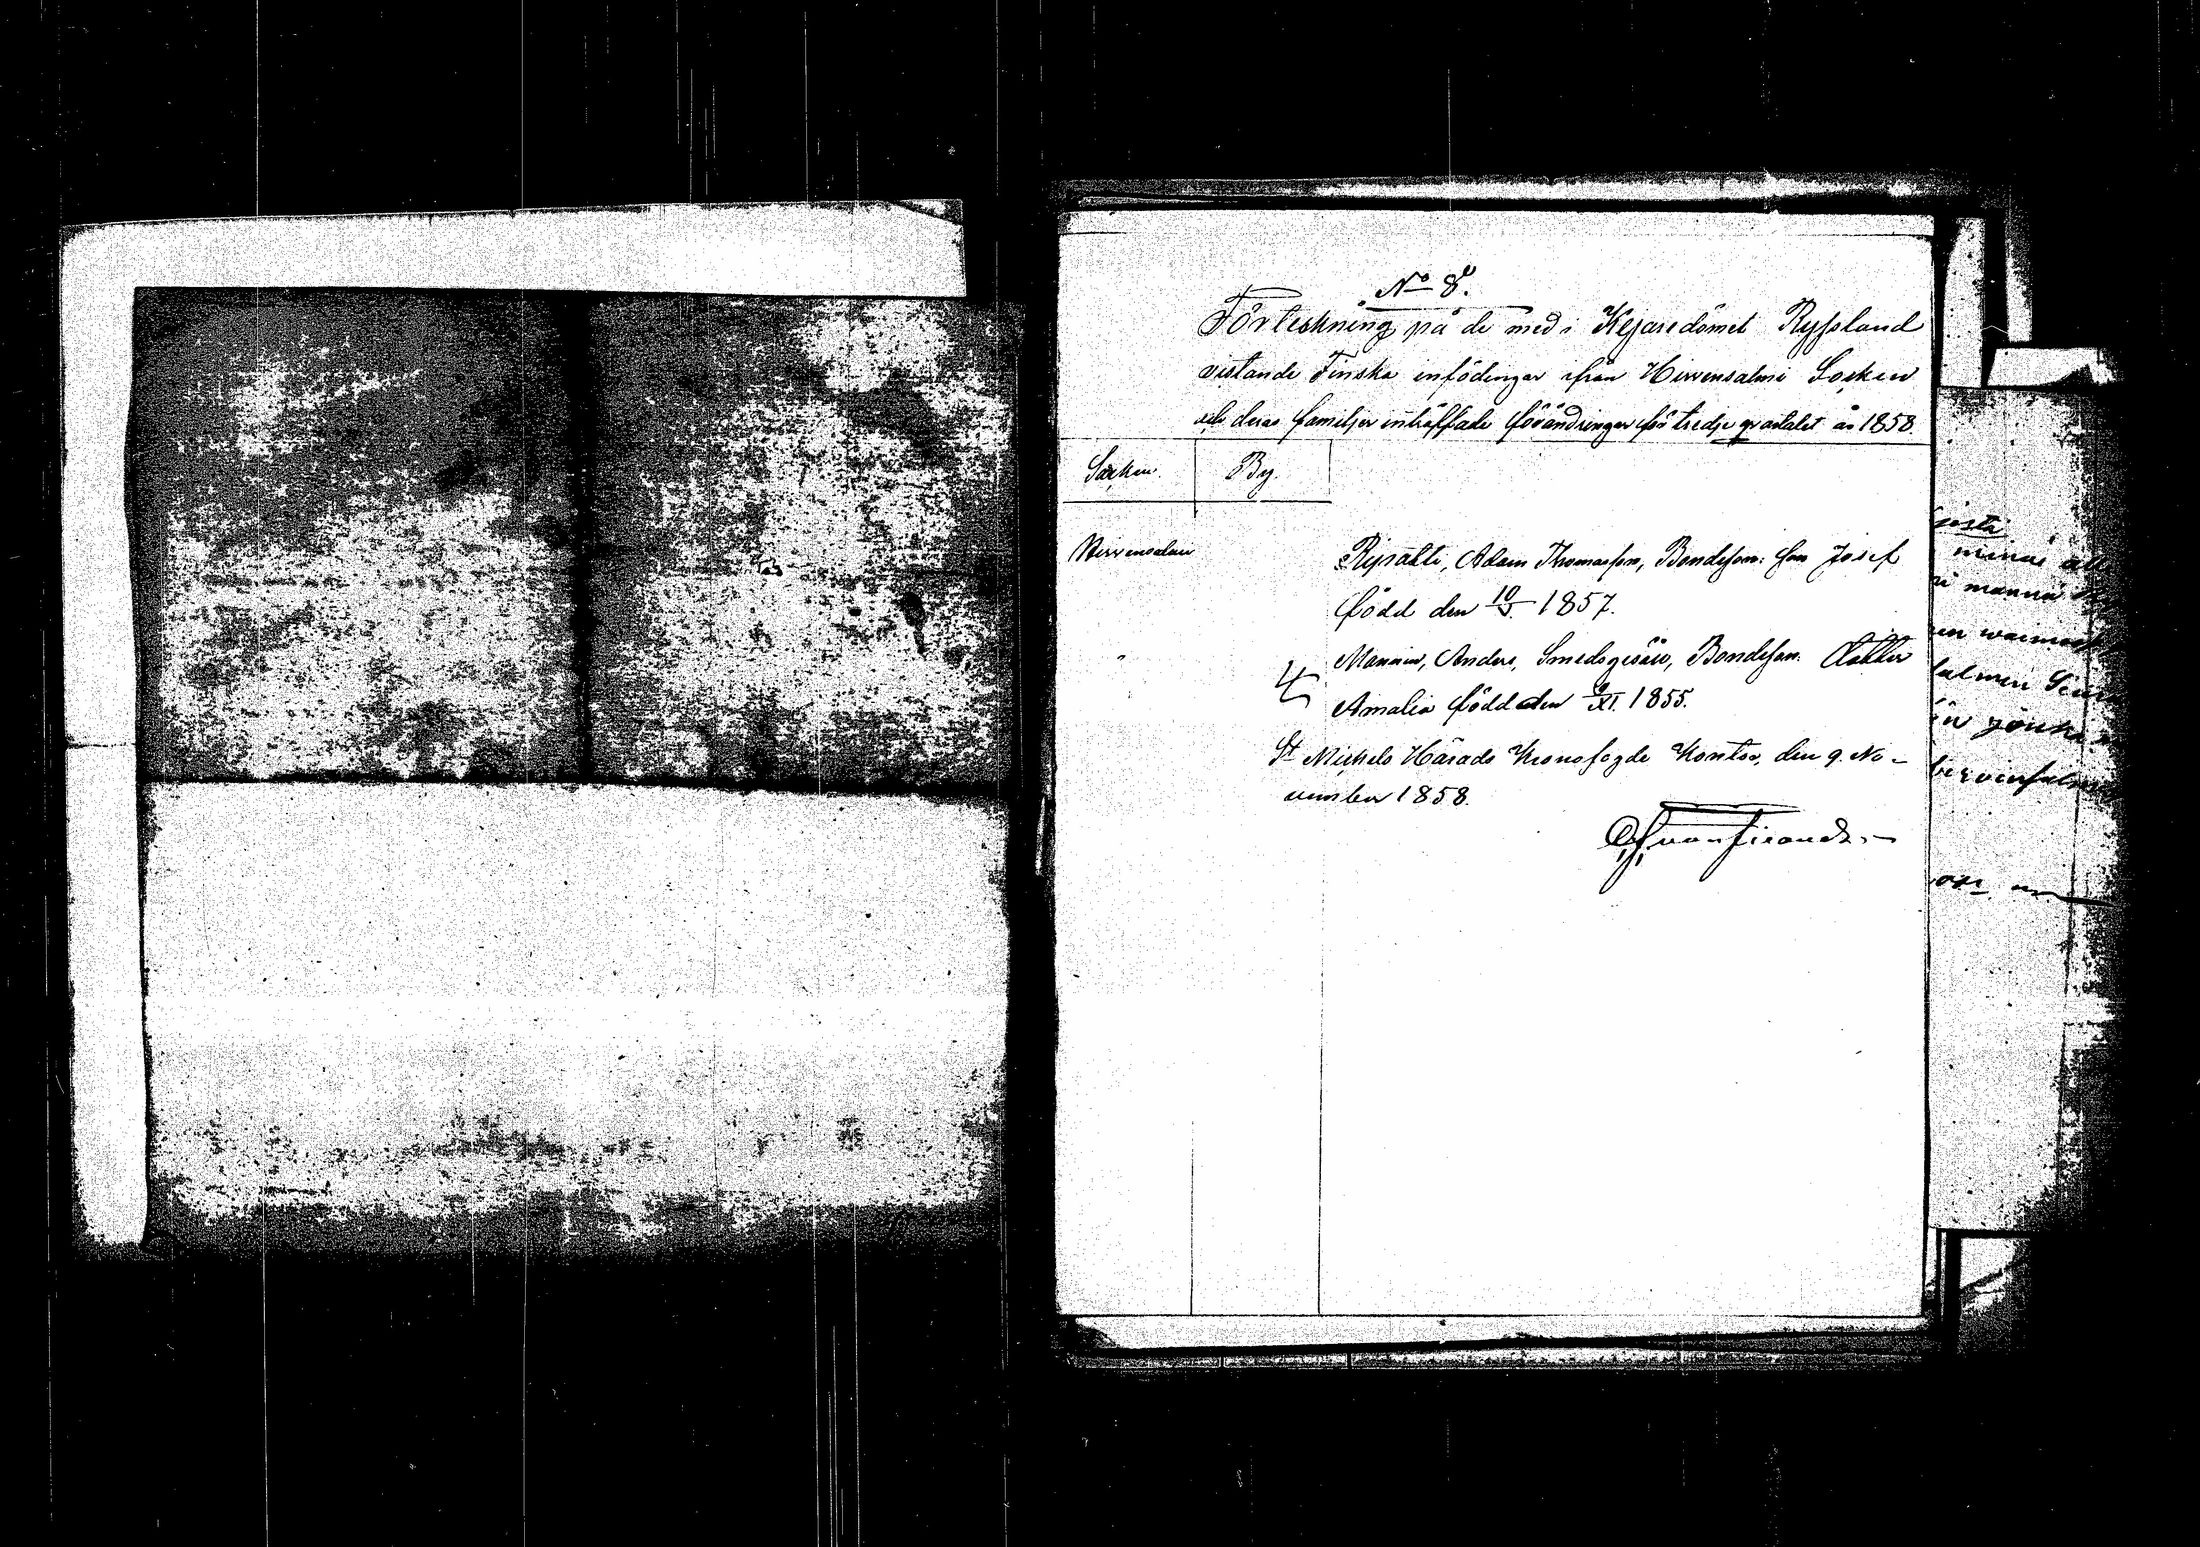 No 8.
Förteckning på de med i Kejsaredömet Ryssland
vistande Finska infödingar ifrån Hirvensalmi Socken
och deras familjer inträffade förändringar för tredje qvartalet år 1858.
Socken. By.
Hirvensalmi Ripatti, Adam Thomasson, Bondeson: son Josef
född den 10/5 1857.
" Manninen, Anders, Smedsgesäll, Bondeson. dotter
4 Amalia född den XI. 1855.
St Michels Härads Kronofogde Kontor, den 9. No-
vember 1858.
minä
salmen